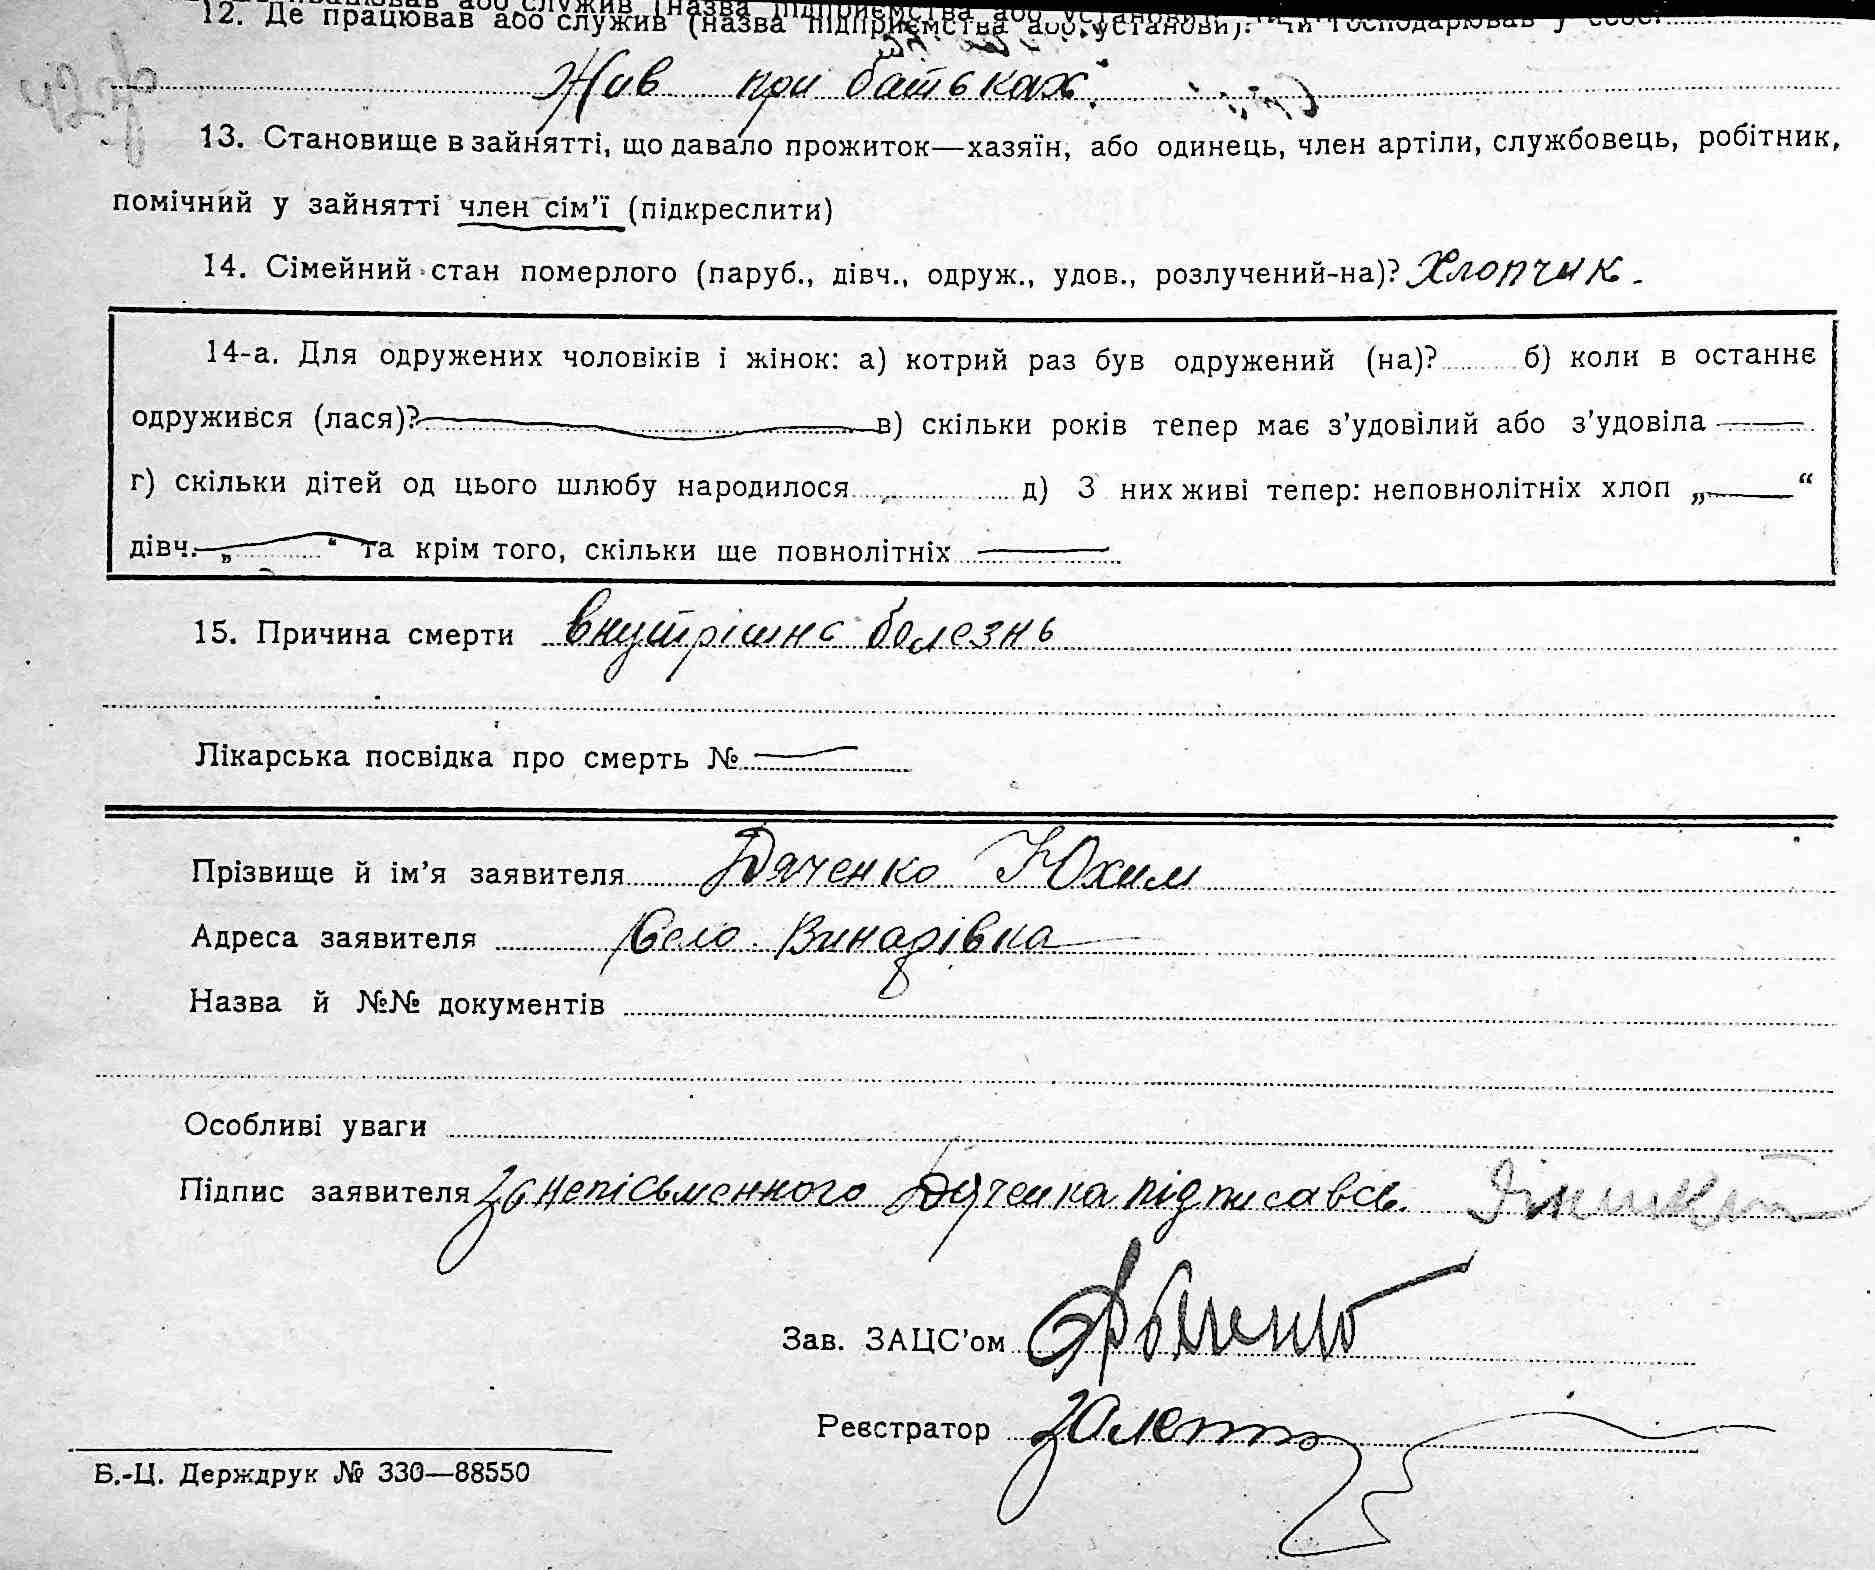 12. Де працював або служив (назва підприємства або установи). Чи господарював у себе?
Жив при батьках.
13. Становище в зайнятті, що давало прожиток—хазяїн, або одинець, член артіли, службовець, робітник,
помічний у зайнятті член сім’ї (підкреслити)
14. Сімейний стан померлого (паруб., дівч., одруж., удов., розлучений-на)? Хлопчик.
14-а. Для одружених чоловіків і жінок: а) котрий раз був одружений (на)? б) коли в останнє
одружився (лася)? в) скільки років тепер має з’удовілий або з’удовіла
г) скільки дітей од цього шлюбу народилося д) З них живі тепер: неповнолітніх хлоп „ “
дівч. „ “ та крім того, скільки ще повнолітніх
15. Причина смерти внутрішнє болезнь
Лікарська посвідка про смерть №
Прізвище й ім’я заявителя Дяченко Юхим
Адреса заявителя Село Винадівка
Назва й №№ документів
Особливі уваги
Підпис заявителя За непісьменного Дяченка підписавсь
Зав. ЗАЦС’ом
Реєстратор
Б.-Ц. Держдрук № 330—88550